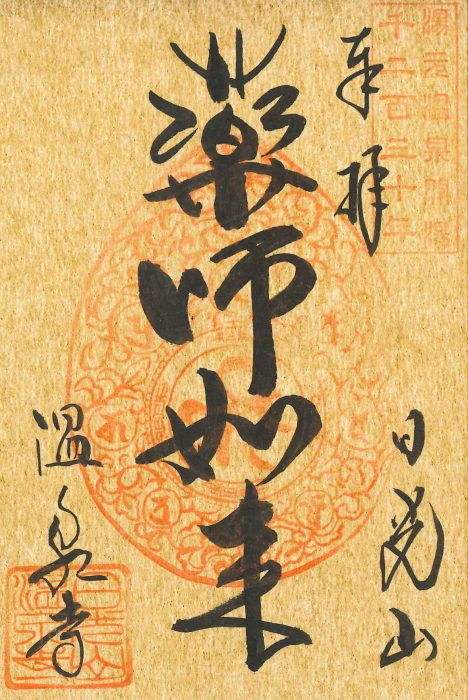 湯元温泉開湯
千二百三十年
奉拝
日光山
薬師如来
温泉寺